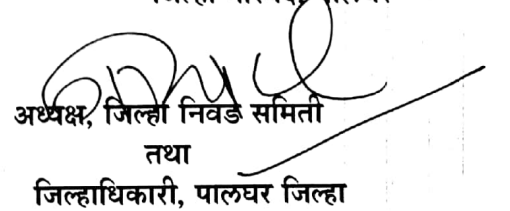 अध्यक्ष, जिल्हा निवड समिती
तथा
जिल्हाधिकारी, पालघर जिल्हा